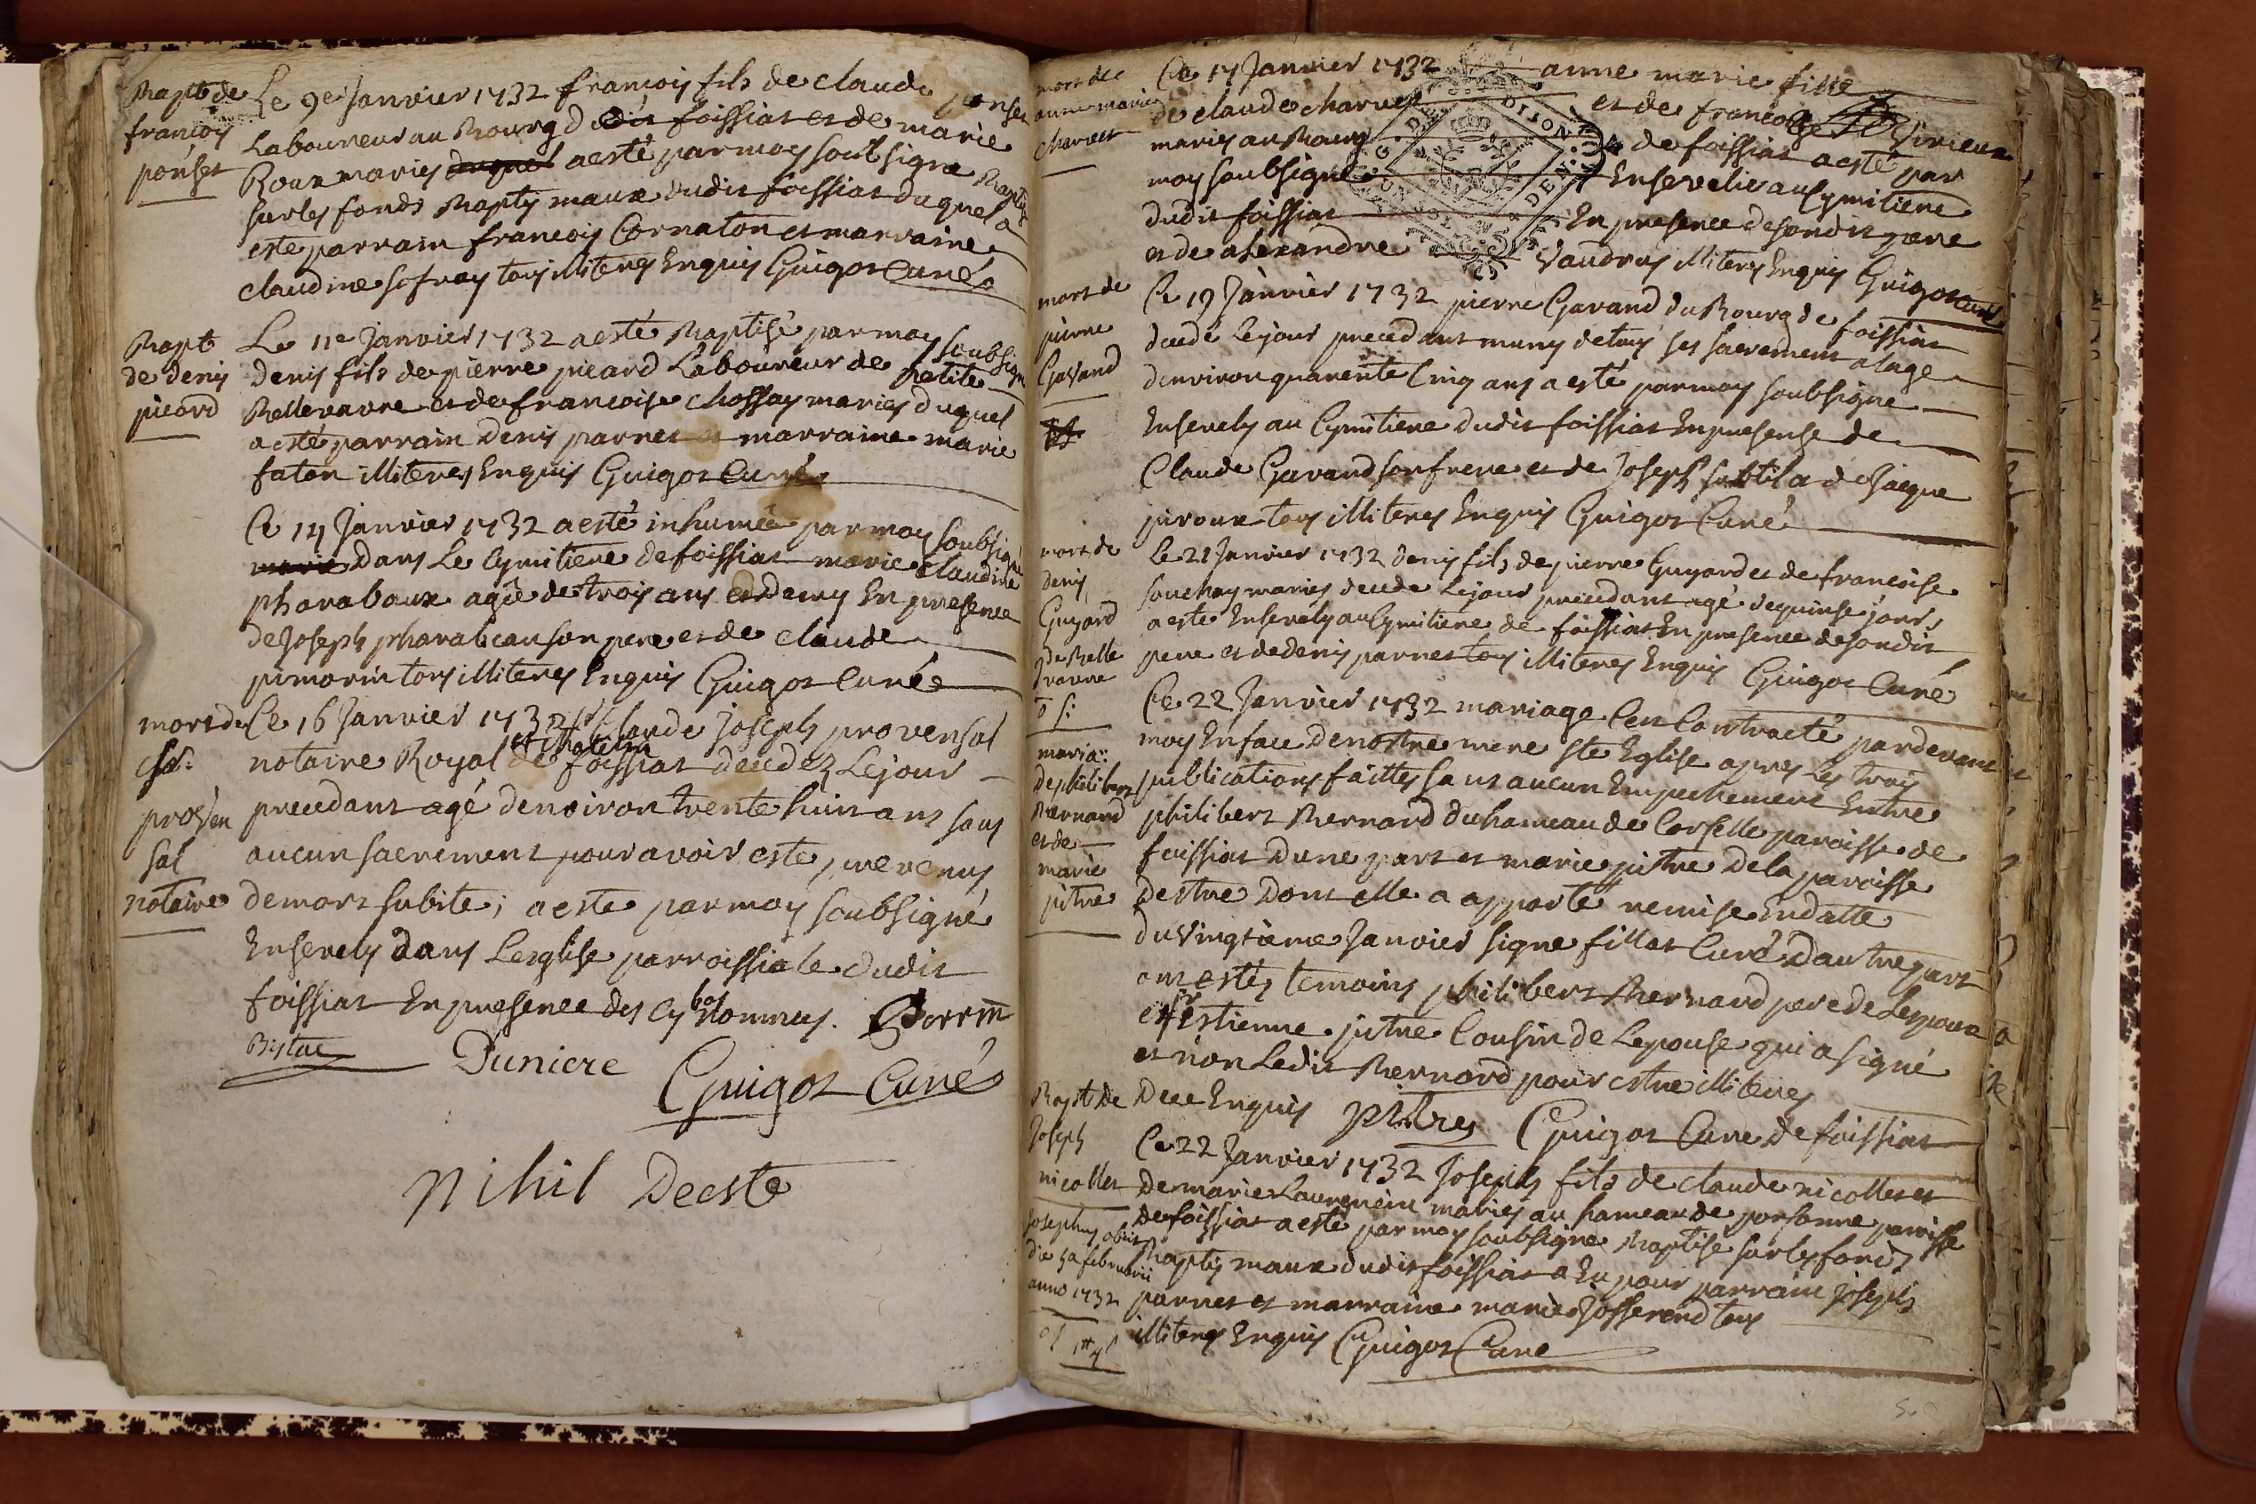 Bapt de
francois
ponset
Le 9e Janvier 1732 francois fils de claude ponset
Laboureur au Bourg dudit foissiat et de marie
Roux mariés duquel a esté par moy soubsigné Baptisé
sur les fonds Baptismaux dudit foissiat duquel a
esté parrain francois Cornaton et marraine
claudine sofray tous illiteres Enquis Guigot Curé
Bapt
de denis
picard
Le 11e Janvier 1732 a esté Baptisé par moy soubsigné
denis fils de pierre picard Laboureur de petite
Bellevavre et de francoise chossay mariés duquel
a esté parrain denis parnet et marraine marie
faton illiteres Enquis Guigot Curé
Ce 14 Janvier 1732 a esté inhumée par moy soubsigné
marie Dans Le Cymitiere de foissiat marie claudine
pharaboux agée de trois ans et demy En presence
de Joseph pharabeau son pere et de claude
pimorin tous illiteres Enquis Guigot Curé
mort de
cl:
proven
sal
notaire
Ce 16 Janvier 1732 claude joseph provensal
notaire Royal et chatelain de foissiat decedez Le jour
precedant agé denviron trente huit ans sans
aucun sacrement pour avoir esté prevenus
de mort subite; a esté par moy soubsigné
Ensevely dans Lesglise parroissiale dudit
foissiat En presence des cy bas nommes. Perrin
Bistac Duniere Guigot Curé
Nihil Deeste
mort de
anne marie
charvet
Ce 17 Janvier 1732 anne marie fille
de claude charvet et de francoise Virieux
mariés au Bourg de foissiat a esté par
moy soubsigné Ensevelie au Cymitiere
dudit foissiat En presence desondit pere
et de alexandre Vaudrus illiteres Enquis Guigot Curé
mort de
pierre
Gavand
Ce 19 Janvier 1732 pierre Gavand du Bourg de foissiat
decedé Le jour precedant muny de tous ses sacrement a lage
denviron quarente Cinq ans a esté par moy soubsigné
Ensevely au Cymitiere dudit foissiat En presense de
Claude Gavand son frere et de Joseph subtil a de Jacque
piroux tous illiteres Enquis Guigot Curé
mort de
denis
Guyard
de Belle
vavre
Le 21 Janvier 1732 denis fils de pierre Guyard et de francoise
souchay mariés decedé Le jour precedant agé de quinse jours
a esté Ensevely au Cymitiere de foissiat En presence de sondit
pere et de denis parnet tous illiteres Enquis Guigot Curé
maria:
de philibert
Bernard
et de
marie
pitre
Ce 22 Janvier 1732 mariage Cest Contracté pardevant
moy En face de nostre mere ste Eglise apres Les trois
publications faittes sans aucun Empechement Entre
philibert Bernard du hameau de Corselle paroisse de
foissiat Dune part et marie pitre De la paroisse
Destre Dont elle a apporté remise En datte
du Vingtieme Janvier signe fillot Curé Dautre part
ont estés temoins philibert Bernard pere de Lepoux
et Estienne pitre Cousin de Lepouse qui a signé
et non Ledit Bernard pour estre illiteres
Dece Enquis Pitres Guigot Cure de foissiat
Bapt De
Joseph
nicollet
Josephus obiit
die 5a februarii
anno 1732
Ce 22 Janvier 1732 Joseph fils de claude nicollet et
De marie Laurencin mariés au hameau de ponsonne paroisse
de foissiat a esté par moy soubsigné Baptise sur les fonds
Baptismaux dudit foissiat a Eu pour parrain joseph
parnet et marraine marie Josserand tous
illiteres Enquis Guigot Cure